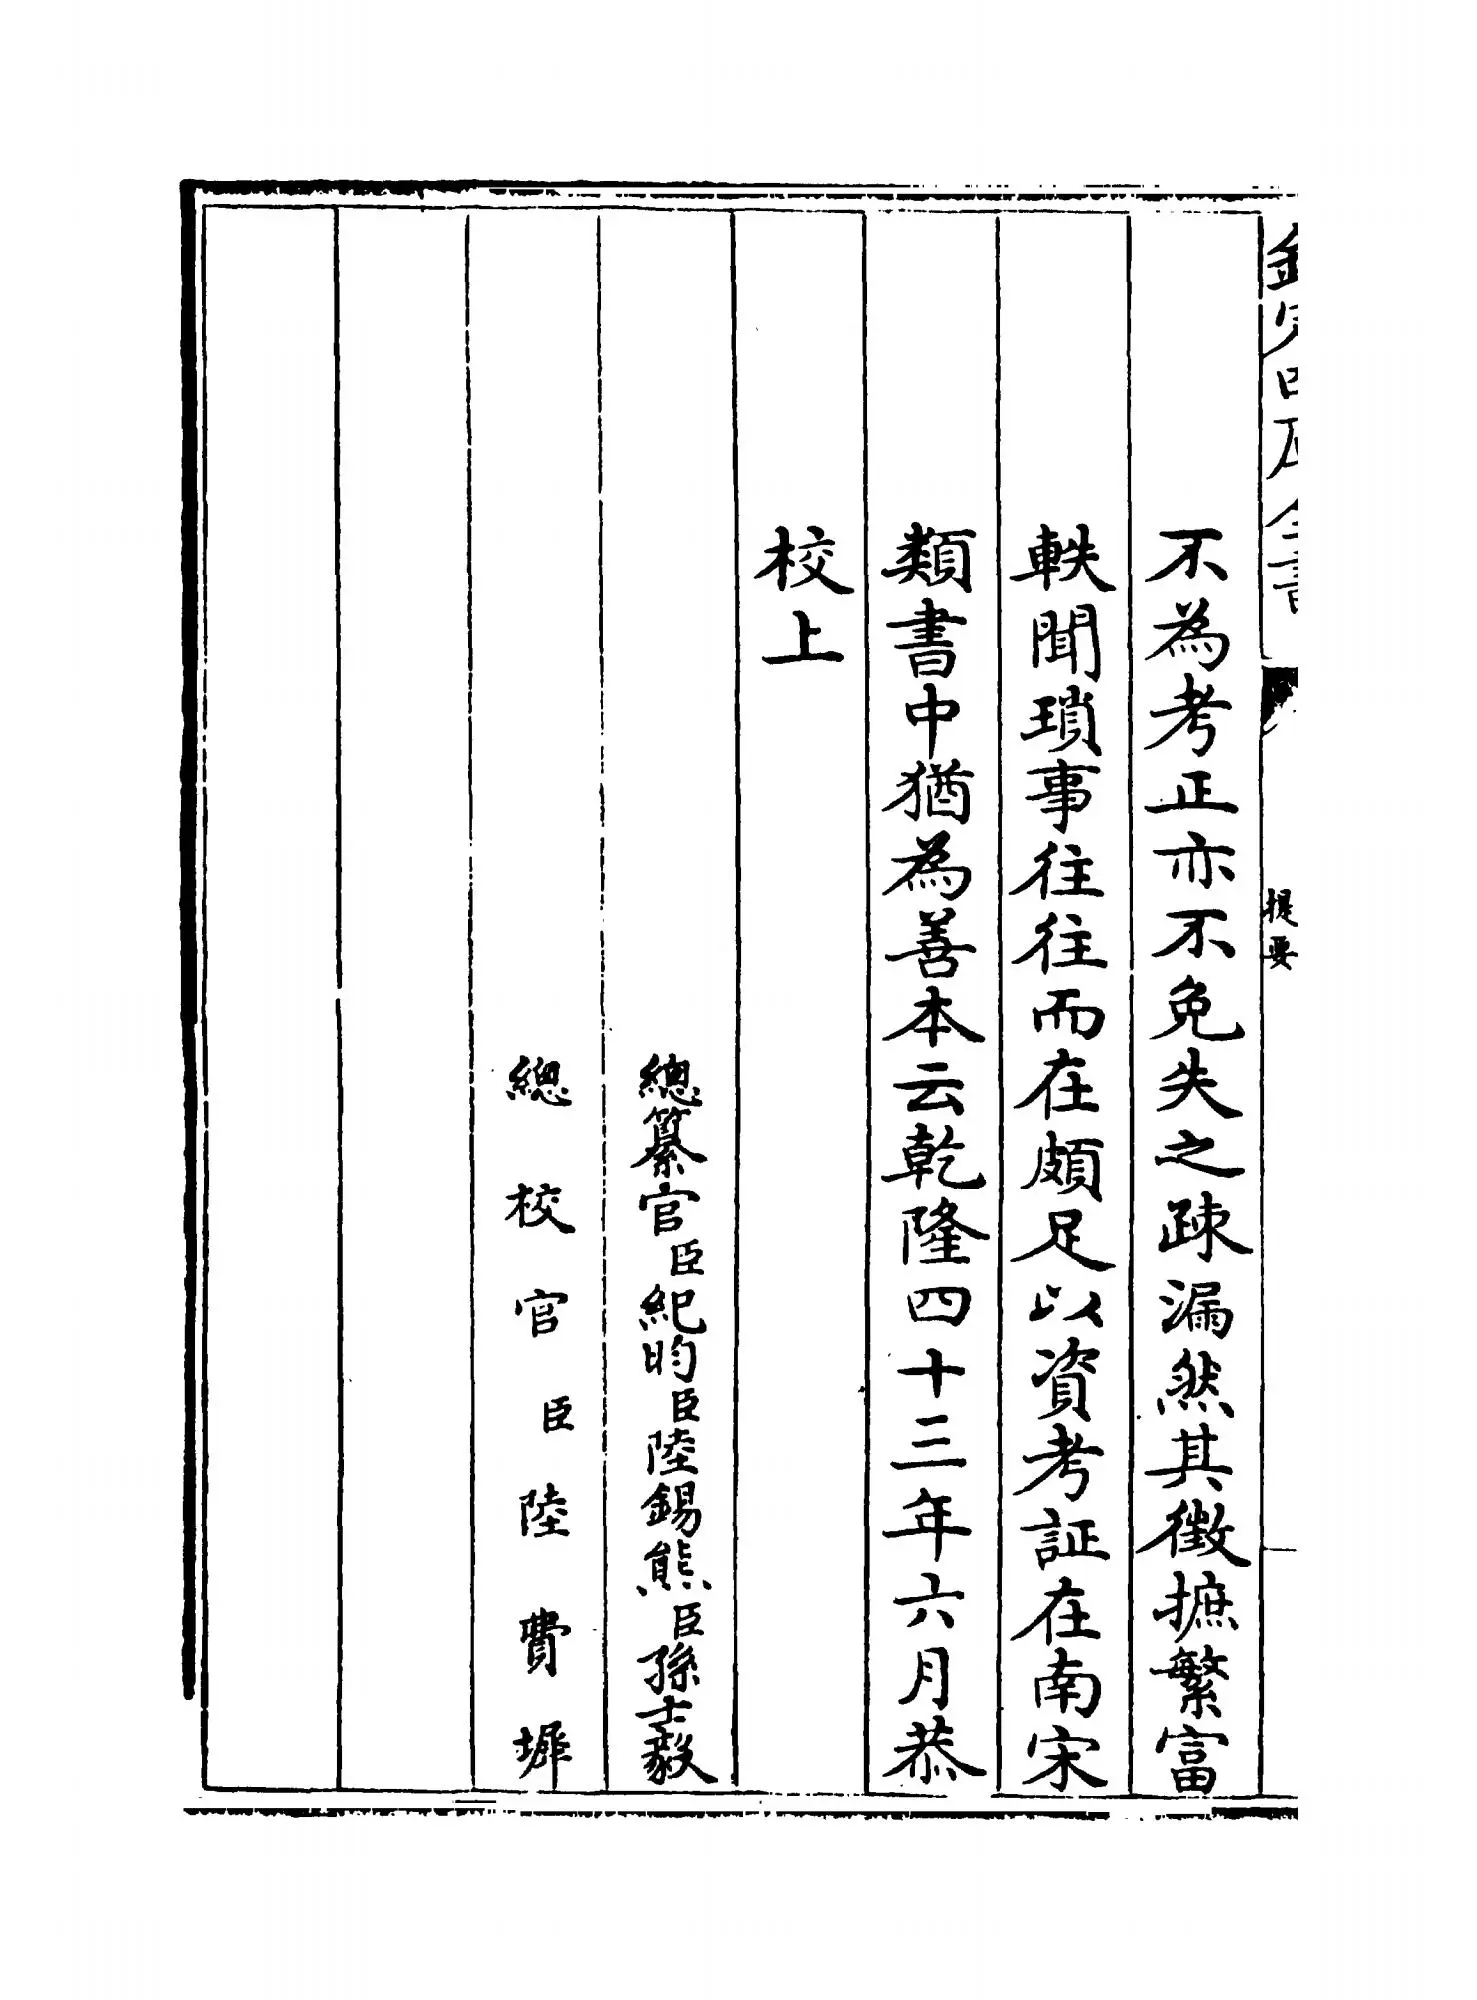 欽定四庫全書
提要
不為考正亦不免失之疎漏然其徵摭繁富
軼聞瑣事往往而在頗足以資考証在南宋
類書中猶為善本云乾隆四十三年六月恭
校上
總纂官臣紀昀臣陸錫熊臣孫士毅
總校官臣陸費墀